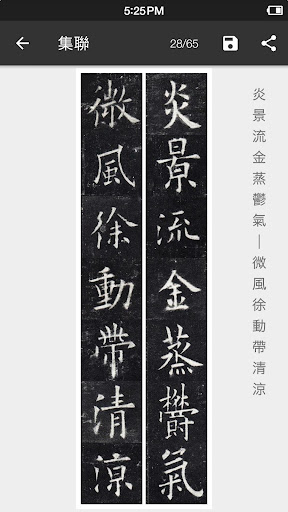 5:25PM
集聯
28/65
炎景流金蒸鬱氣
微風徐動帶清涼
炎景流金蒸鬱氣—微風徐動帶清涼